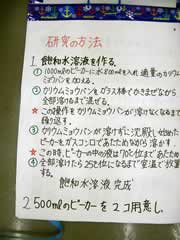 研究の方法
1 飽和水溶液を作る。
① 1000mlのビーカーに水800mlを入れ適量のカリウム
ミョウバンを加える。
② カリウムミョウバンをガラス棒でかきまぜながら
全部溶けるまで混ぜる。
★ この操作をカリウムミョウバンが溶けなくなるまで
繰り返す。
③ カリウムミョウバンが溶けずに沈殿し始めたら
ビーカーをガスコンロであたためながら溶かす。
★ この時、ビーカーの中の液は70℃位まであたため
④ 全部溶けたら25℃位になるまで室温で放置
する。
飽和水溶液 完成
2 500mlのビーカーを2コ用意し、